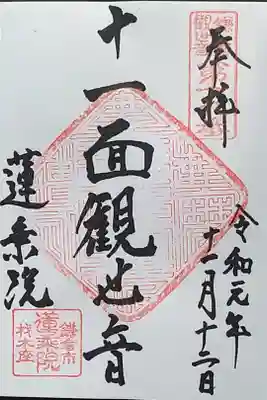 奉拝
十一面観世音
蓮乗院
令和元年
十二月十二日
鎌倉市
蓮乗院
材木座